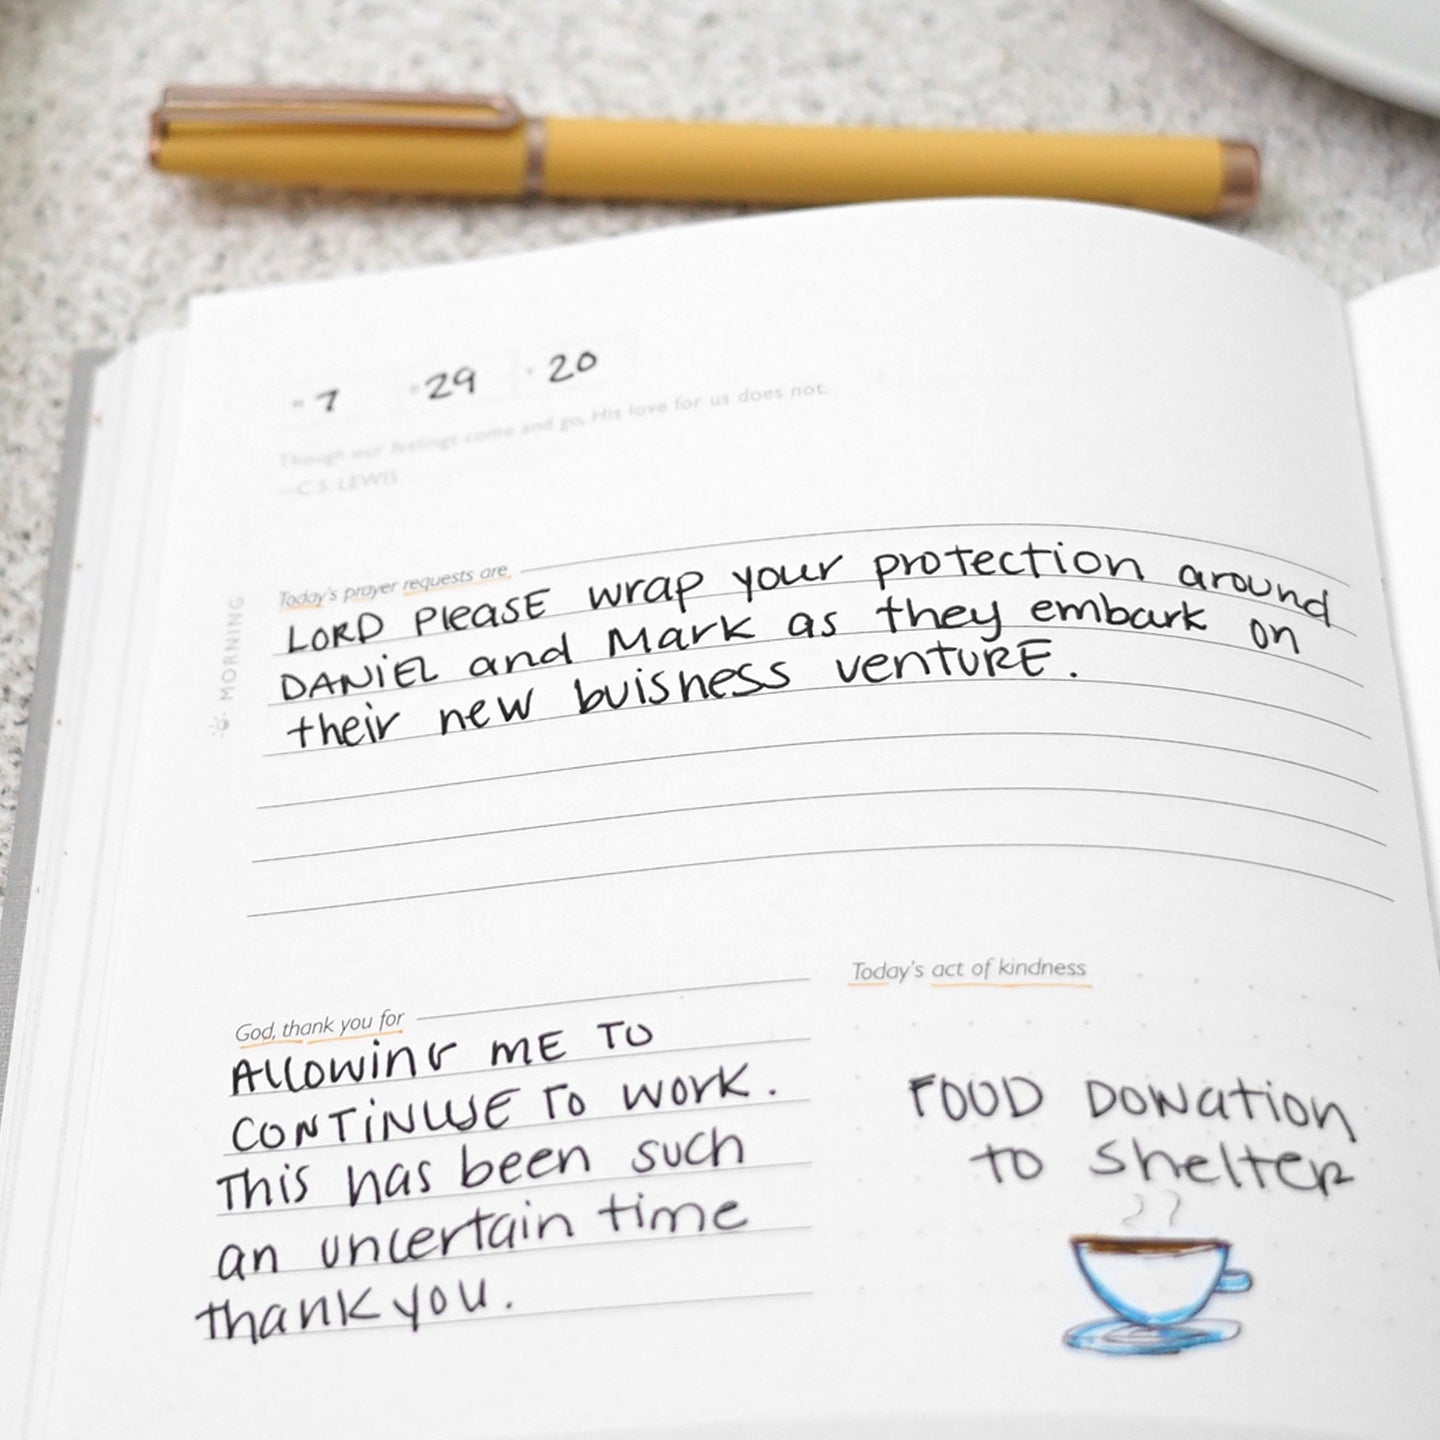 7 29 20
Though our feelings come and go, His love for us does not.
—C. S. LEWIS
MORNING
Today's prayer requests are
LORD PleaSE wrap your protection around
DANiEL and Mark as they embark on
their new buisness ventURE.
God, thank you for
Allowing mE TO
CONTiNUE To work.
This has been such
an uncertain time
thank you.
Today's act of kindness
FOOD DoNation
to Shelter